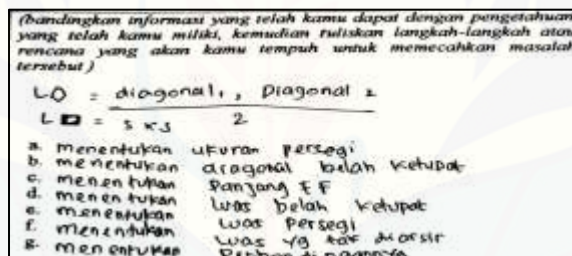 (bandingkan informasi yang telah kamu dapat dengan pengetahuan
yang telah kamu miliki, kemudian tuliskan langkah-langkah atau
rencana yang akan kamu tempuh untuk memecahkan masalah
tersebut)
L◇ = diagonal₁, Diagonal 2
2
L□ = s x s
a. menentukan ukuran persegi
b. menentukan diagonal belah ketupat
c. menentukan Panjang EF
d. menentukan luas belah ketupat
e. menentukan luas persegi
f. menentukan luas yg tak diarsir
g. menentukan Perbandingannya